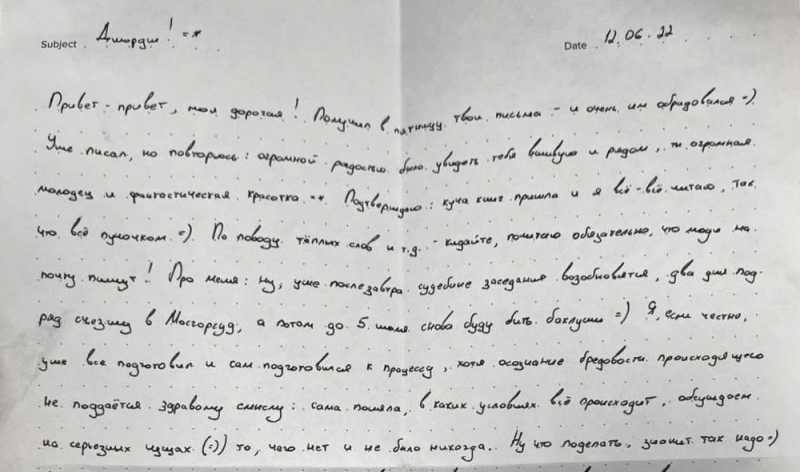 Subject Джорджи! =*
Date 12.06.22
Привет-привет, моя дорогая! Получил в пятницу твои письма - и очень им обрадовался =)
Уже писал, но повторюсь: огромной радостью было увидеть тебя вживую и рядом, ты огромная
молодец и фантастическая красотка =*. Подтверждаю: куча книг пришла и я всё-всё читаю, так
что всё пучочком =). По поводу тёплых слов и т.д. - кидайте, почитаю обязательно, что люди на
почту пишут! Про меня: ну, уже послезавтра судебные заседания возобновятся, два дня под-
ряд съезжу в Мосгорсуд, а потом до 5 июля снова буду бить баклуши =) Я, если честно,
уже все подготовил и сам подготовился к процессу, хотя осознание бредовости происходящего
не поддаётся здравому смыслу: сама поняла, в каких условиях всё происходит, обсуждаем
на серьезных щщах (=)) то, чего нет и не было никогда.. Ну что поделать, значит так надо =)